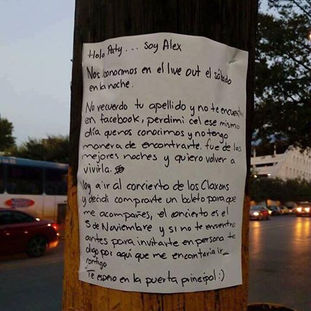 Hola Paty... Soy Alex
Nos conocimos en el live out el sábado
en la noche.
No recuerdo tu apellido y no te encuentro
en facebook, perdí mi cel ese mismo
día que nos conocimos y no tengo
manera de encontrarte. fue de las
mejores noches y quiero volver a
vivirla.
Voy a ir al concierto de los Claxons
y decidí comprarte un boleto para que
me acompañes, el concierto es el
5 de Noviembre y si no te encuentro
antes para invitarte en persona, te
digo por aquí que me encantaría ir
contigo
Te espero en la puerta principal :)